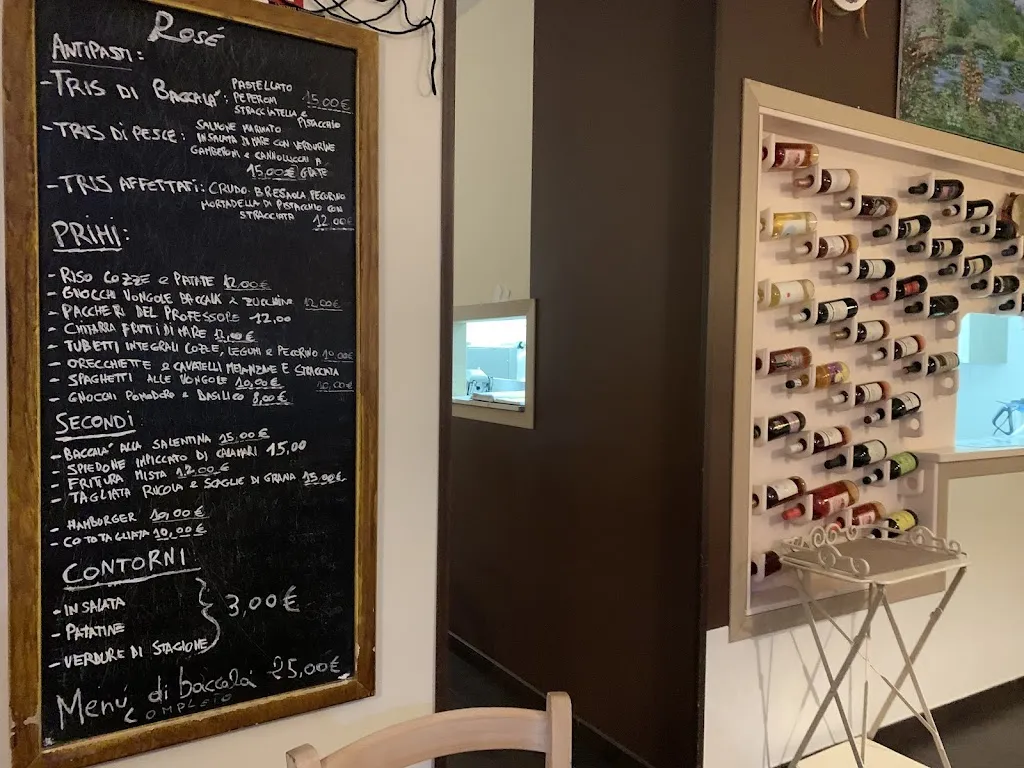 Rosé
ANTIPASTI:
-TRIS DI BACCALA': PASTELLATO
PEPERONI 15,00€
STRACCIATELLA e
PISTACCHIO
-TRIS DI PESCE: SALMONE MARINATO
INSALATA DI MARE CON VERDURINE
GAMBERONI e CANNOLICCHI A
15,00€ GRATE
-TRIS AFFETTATI: CRUDO BRESAOLA, PECORINO
MORTADELLA DI PISTACCHIO CON
STRACCIATA 12,00€
PRIMI:
- RISO COZZE e PATATE 12,00€
- GNOCCHI VONGOLE BACCALA' e ZUCCHINE 12,00€
- PACCHERI DEL PROFESSORE 12,00
- CHITARRA FRUTTI DI MARE 12,00€
- TUBETTI INTEGRALI COZZE, LEGUMI e PECORINO 10,00€
- ORECCHIETTE e CAVATELLI MELANZANE E STRACCIATA
- SPAGHETTI ALLE VONGOLE 10,00€ 10,00€
- GNOCCHI POMODORO e BASILICO 8,00€
SECONDI:
- BACCALA' ALLA SALENTINA 15,00€
- SPIEDONE IMPICCATO DI CALAMARI 15,00
- FRITTURA MISTA 12,00€
- TAGLIATA RUCOLA e SCAGLIE DI GRANA 15,00€
- HAMBURGER 10,00€
- COTOTAGLIATA 10,00€
CONTORNI
- INSALATA
- PATATINE 3,00€
- VERDURE DI STAGIONE
Menú di baccalà 25,00€
COMPLETO